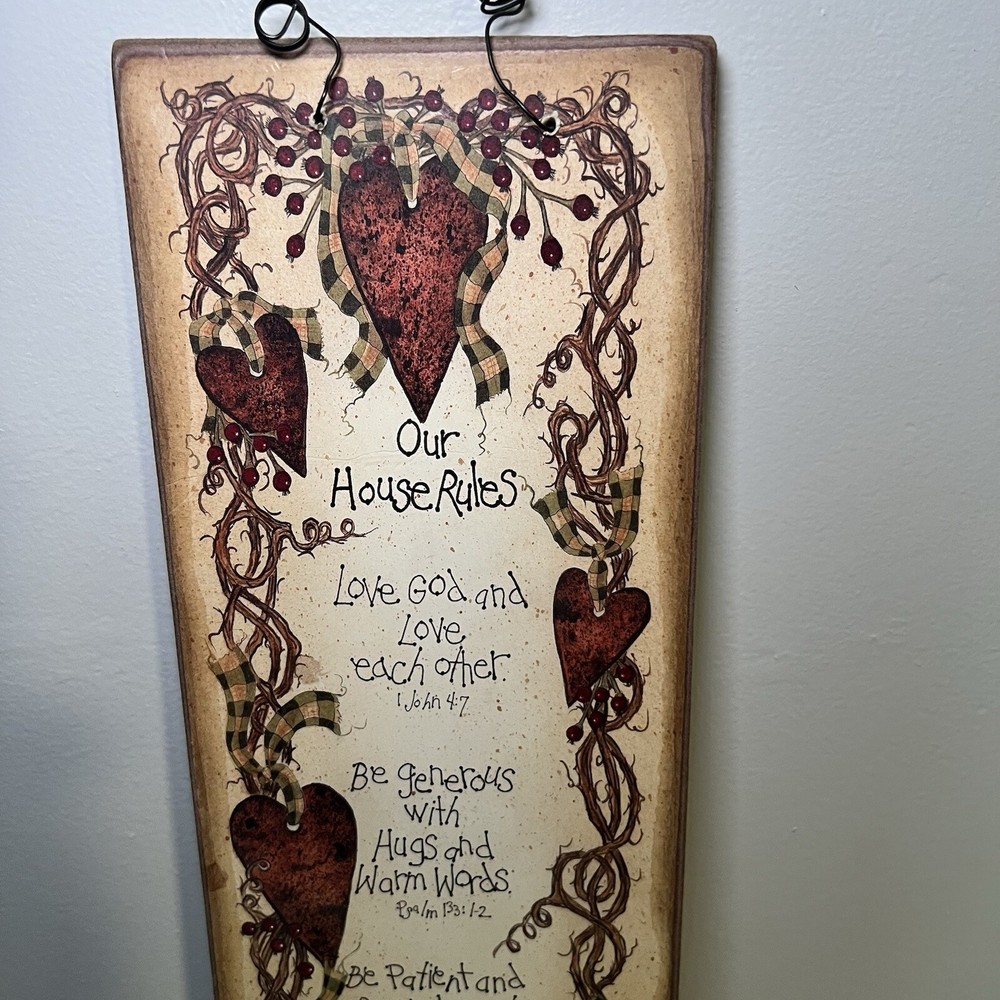 Our
House Rules
Love God and
Love
each other.
1 John 4:7
Be generous
with
Hugs and
Warm Words.
Psalm 133:1-2
Be Patient and